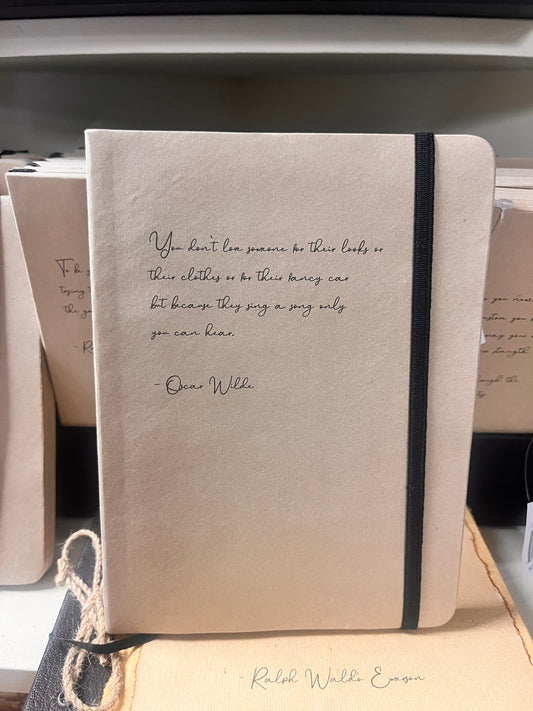 You don't love someone for their looks or
their clothes or for their fancy car
but because they sing a song only
you can hear.
- Oscar Wilde
To be y
trying t
the g
- R
you nee
custom you s
away your
strength
through the
- Ralph Waldo Emerson